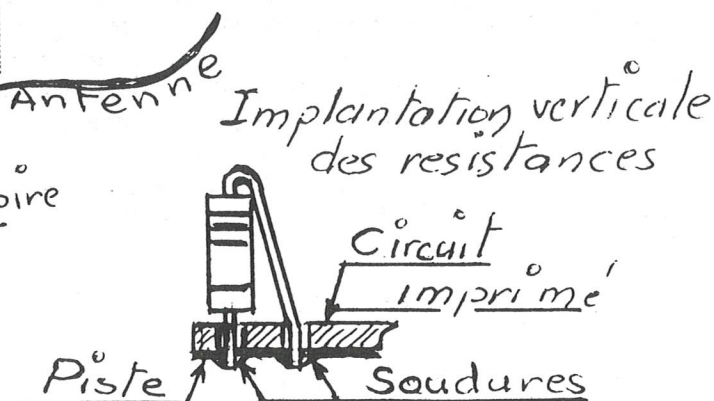 Antenne
Implantation verticale
des resistances
Circuit
imprimé
Piste
Soudures